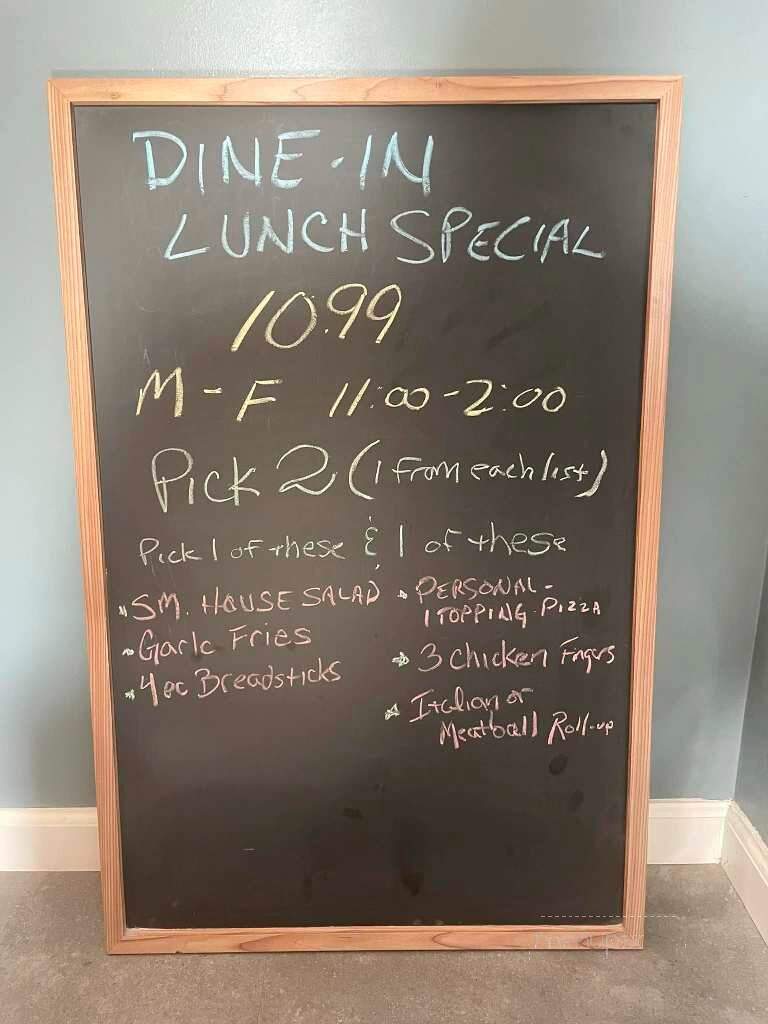 DINE-IN
LUNCH SPECIAL
10.99
M-F 11:00-2:00
Pick 2 (1 from each list)
Pick 1 of these & 1 of these
SM. HOUSE SALAD
Garlc Fries
4pc Breadsticks
PERSONAL-
1 TOPPING PIZZA
3 Chicken Fingrs
Italian or
Meatball Roll-up